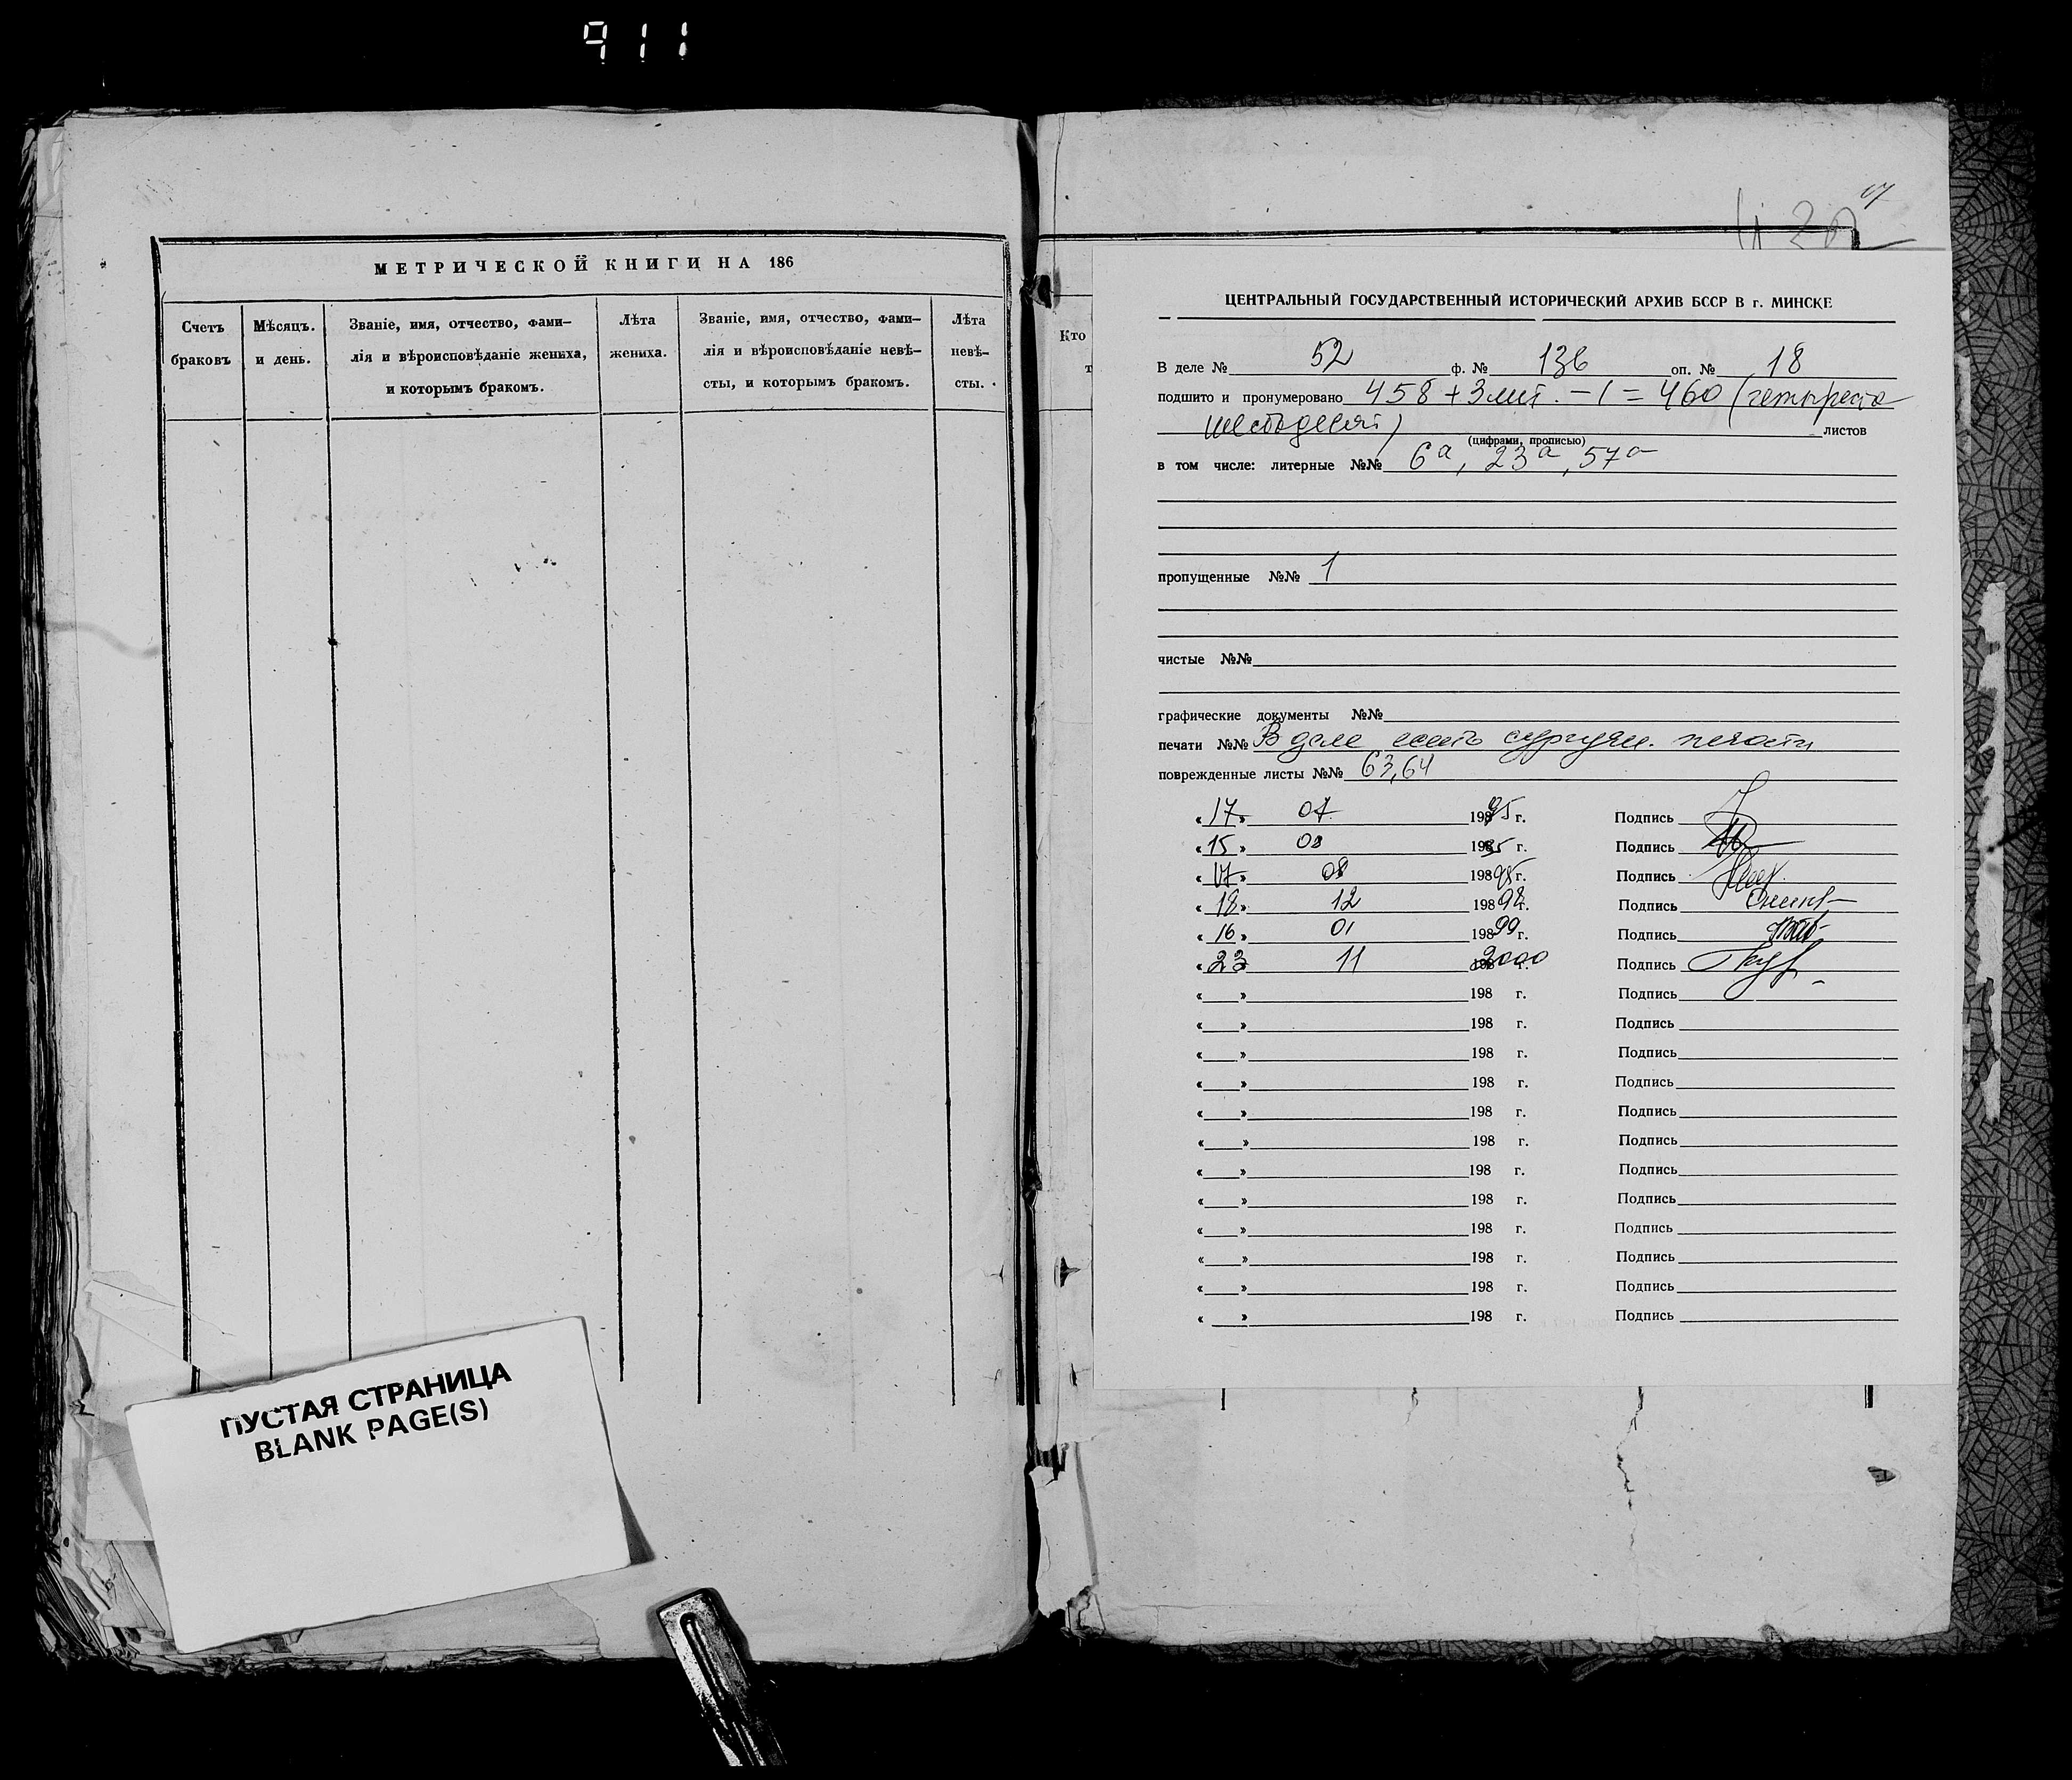 911
МЕТРИЧЕСКОЙ КНИГИ НА 186
Счетъ браковъ
Мѣсяцъ. и день.
Званіе, имя, отчество, фами-
лія и вѣроисповѣданіе жениха,
и которымъ бракомъ.
Лѣта жениха.
Званіе, имя, отчество, фами-
лія и вѣроисповѣданіе невѣ-
сты, и которымъ бракомъ.
Лѣта невѣ-
сты.
ПУСТАЯ СТРАНИЦА
BLANK PAGE(S)
Кто
т
ЦЕНТРАЛЬНЫЙ ГОСУДАРСТВЕННЫЙ ИСТОРИЧЕСКИЙ АРХИВ БССР В г. МИНСКЕ
В деле № 52 ф. № 136 оп. № 18
подшито и пронумеровано 458 + 3 лит. – 1 = 460 (четыреста
шестьдесят) листов
(цифрами, прописью)
в том числе: литерные №№ 6а, 23а, 57а
пропущенные №№ 1
чистые №№
графические документы №№
печати №№ В деле есть сургучн. печати
поврежденные листы №№ 63, 64
« 17 » 07 198 95 г. Подпись
« 15 » 08 198 95 г. Подпись
« 17 » 08 198 98 г. Подпись
« 18 » 12 198 98 г. Подпись
« 16 » 01 198 99 г. Подпись
« 23 » 11 198 2000 г. Подпись
« » 198 г. Подпись
« » 198 г. Подпись
« » 198 г. Подпись
« » 198 г. Подпись
« » 198 г. Подпись
« » 198 г. Подпись
« » 198 г. Подпись
« » 198 г. Подпись
« » 198 г. Подпись
« » 198 г. Подпись
« » 198 г. Подпись
« » 198 г. Подпись